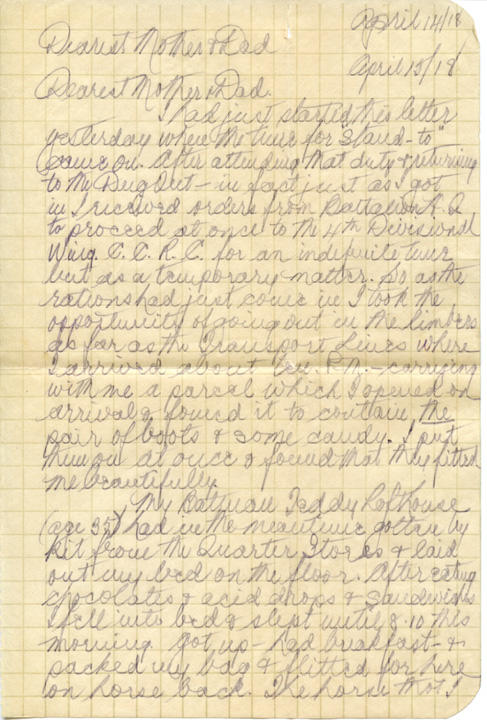 April 14/18
Dearest Mother & Dad
April 15/18
Dearest Mother & Dad.
I had just started this letter
yesterday when the time for Stand-to"
came on. After attending that duty & returning
to the Dug Out - in fact just as I got
in I received orders from Battalion H.Q
to proceed at once to the 4th Divisional
Wing C.C.R.C. for an indefinite time
but as a temporary matter. So as the
rations had just come in I took the
opportunity of going out in the limbers
as far as the Transport Lines where
I arrived about P.M. - carrying
with me a parcel which I opened on
arrival & found it to contain the
pair of boots & some candy. I put
them on at once & found that they fitted
me beautifully.
My Batman Teddy Lofthouse
(age 35) had in the meantime gotten my
kit from the Quarter Stores & laid
out my bed on the floor. After eating
chocolates & acid drops & sandwiches
I fell into bed & slept until 8.10 this
morning. Got up - had breakfast - &
packed my bag & flitted for here
on horse back. The horse that I